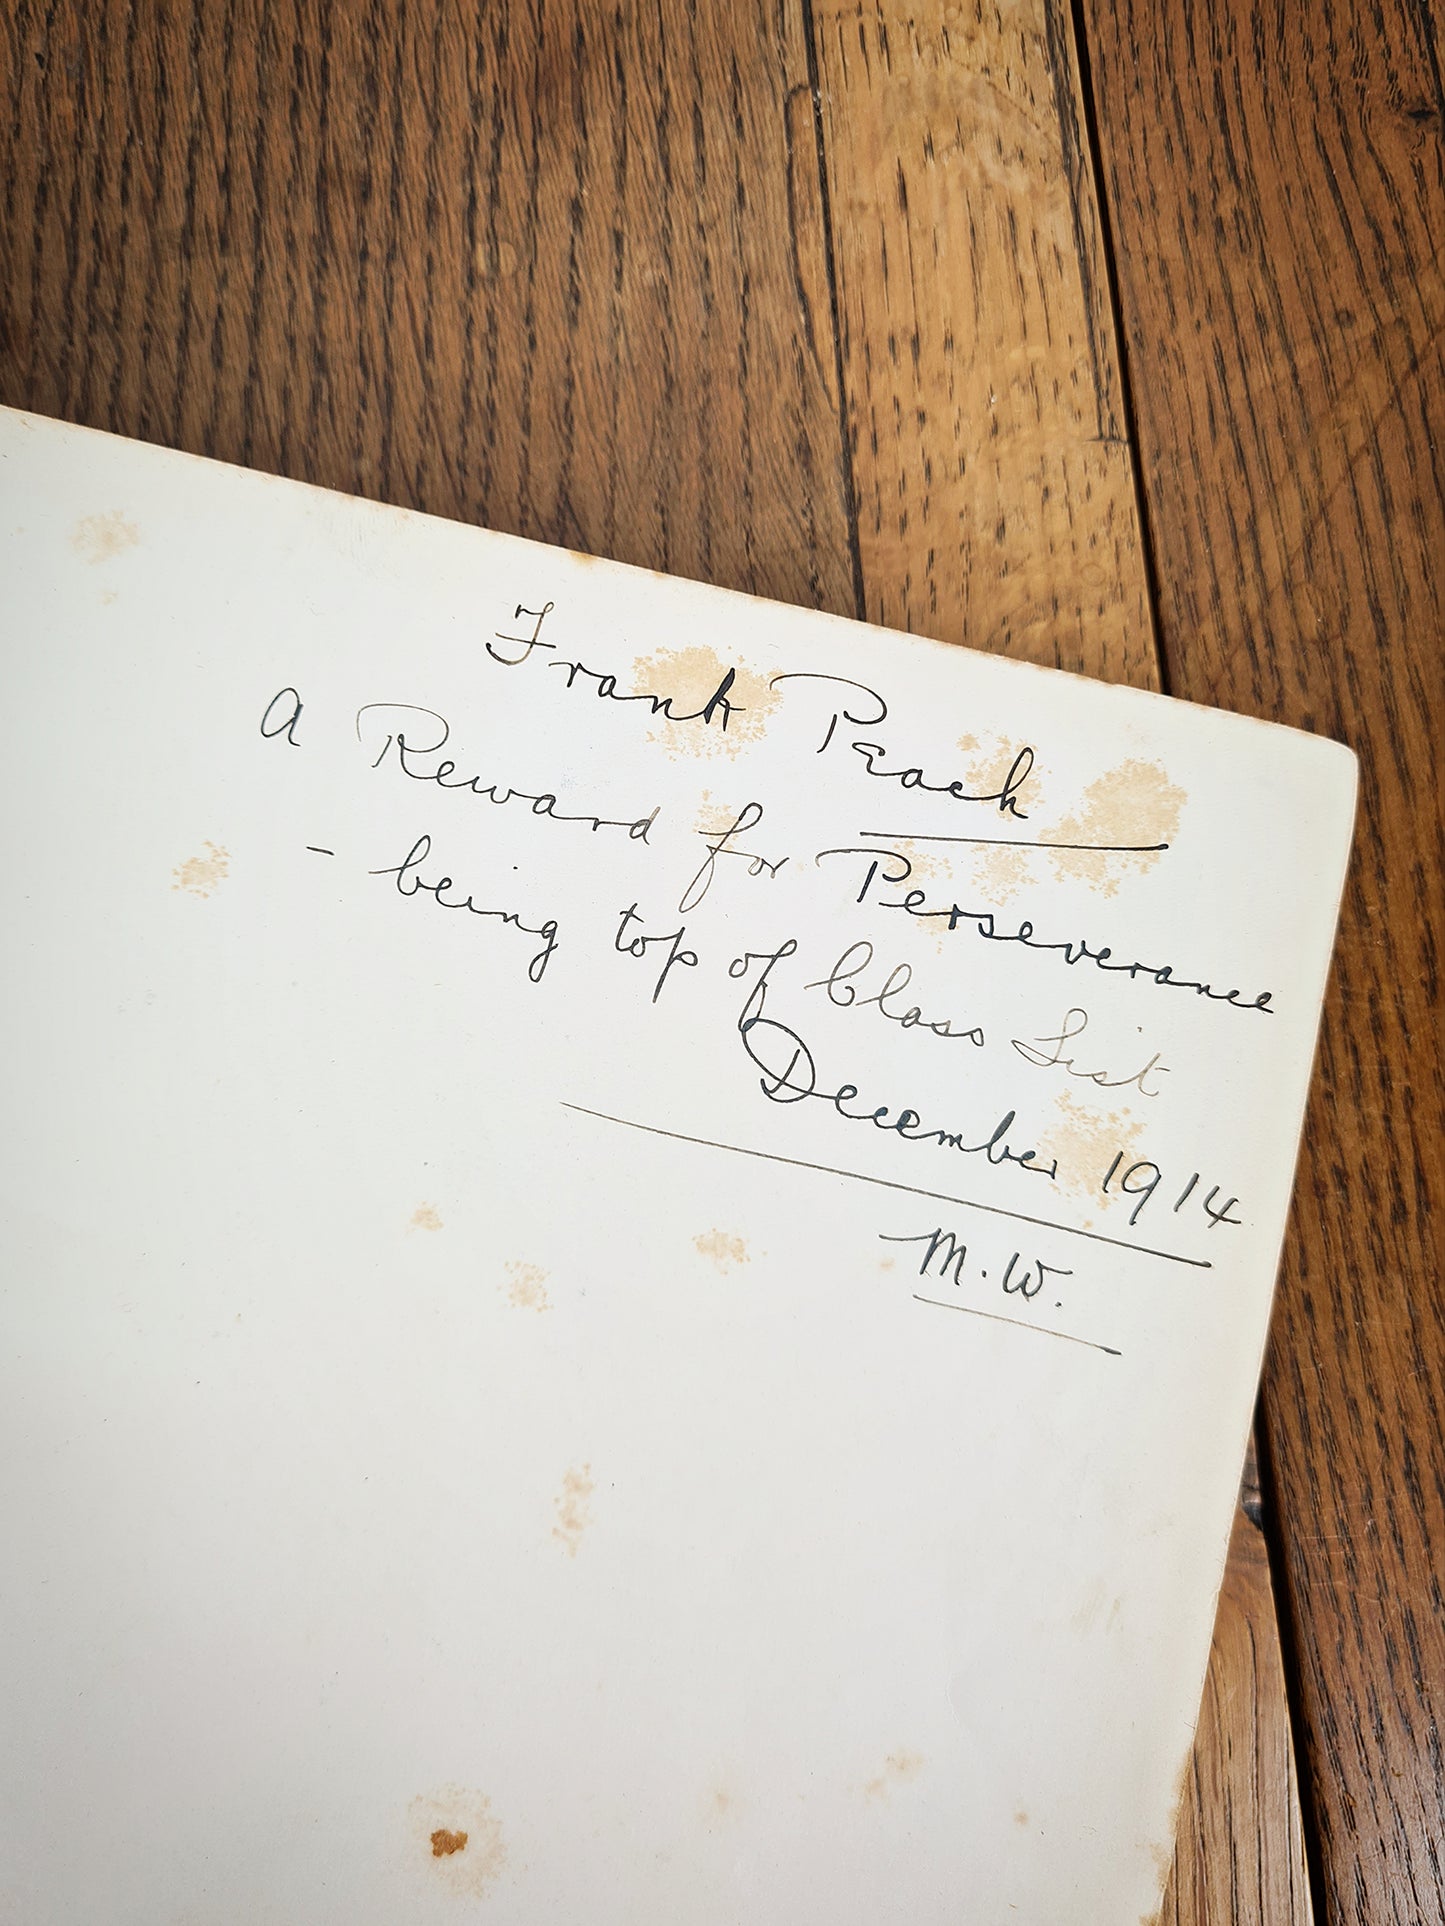 Frank Peach
A Reward for Perseverance
- being top of Class List
December 1914
M.W.